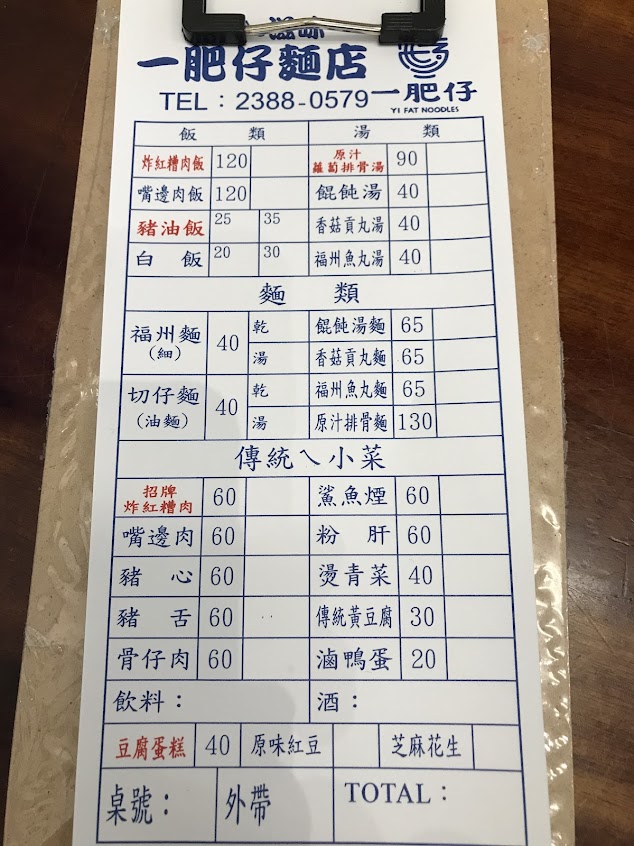 一肥仔麵店
TEL：2388-0579
一肥仔
YI FAT NOODLES
飯 類 湯 類
炸紅糟肉飯 120 原汁蘿蔔排骨湯 90
嘴邊肉飯 120 餛飩湯 40
豬油飯 25 35 香菇貢丸湯 40
白 飯 20 30 福州魚丸湯 40
麵 類
福州麵(細) 40 乾 湯
餛飩湯麵 65
香菇貢丸麵 65
切仔麵(油麵) 40 乾 湯
福州魚丸麵 65
原汁排骨麵 130
傳統ㄟ小菜
招牌炸紅糟肉 60 鯊魚煙 60
嘴邊肉 60 粉 肝 60
豬 心 60 燙青菜 40
豬 舌 60 傳統黃豆腐 30
骨仔肉 60 滷鴨蛋 20
飲料： 酒：
豆腐蛋糕 40 原味紅豆 芝麻花生
桌號： 外帶 TOTAL：